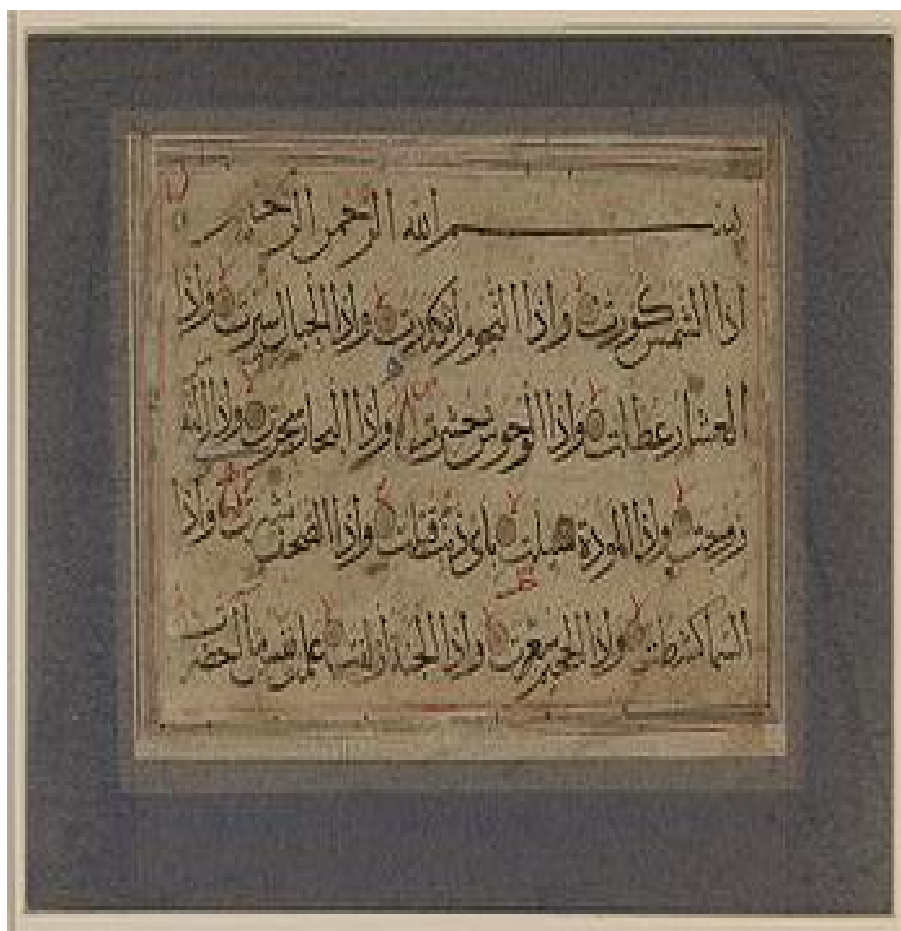 بسم الله الرحمن الرحيم
اذا الشمس كورت واذا النجوم انكدرت واذا الجبال سيرت واذا
العشار عطلت واذا الوحوش حشرت واذا البحار سجرت واذا النفوس
زوجت واذا المودة سئلت باى ذنب قتلت واذا الصحف نشرت واذا
السما كشطت واذا الجحيم سعرت واذا الجنة ازلفت علمت نفس ما احضرت